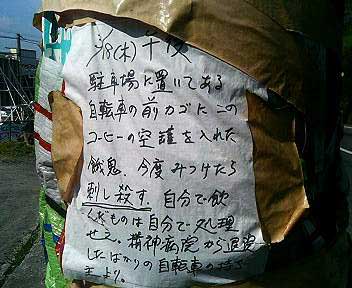 9/8(木)午後
駐車場に置いてある
自転車の前カゴにこの
コーヒーの空罐を入れた
餓鬼。今度みつけたら
刺し殺す。自分で飲
んだものは自分で処理
せえ。精神病院から退院
したばかりの自転車の持ち
主より。